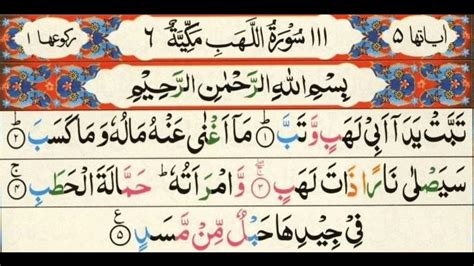 اٰیاتها ۵ ۱۱۱ سُوْرَةُ اللَّهَبِ مَكِّيَّةٌ ۶ رکوعها ۱
بِسْمِ اللهِ الرَّحْمٰنِ الرَّحِيْمِ
تَبَّتْ يَدَآ اَبِيْ لَهَبٍ وَّتَبَّ ۱ مَآ اَغْنٰى عَنْهُ مَالُهٗ وَمَا كَسَبَ ۲
سَيَصْلٰى نَارًا ذَاتَ لَهَبٍ ۳ وَّامْرَاَتُهٗ ؕ حَمَّالَةَ الْحَطَبِ ۴ ج
فِيْ جِيْدِهَا حَبْلٌ مِّنْ مَّسَدٍ ۵ ع